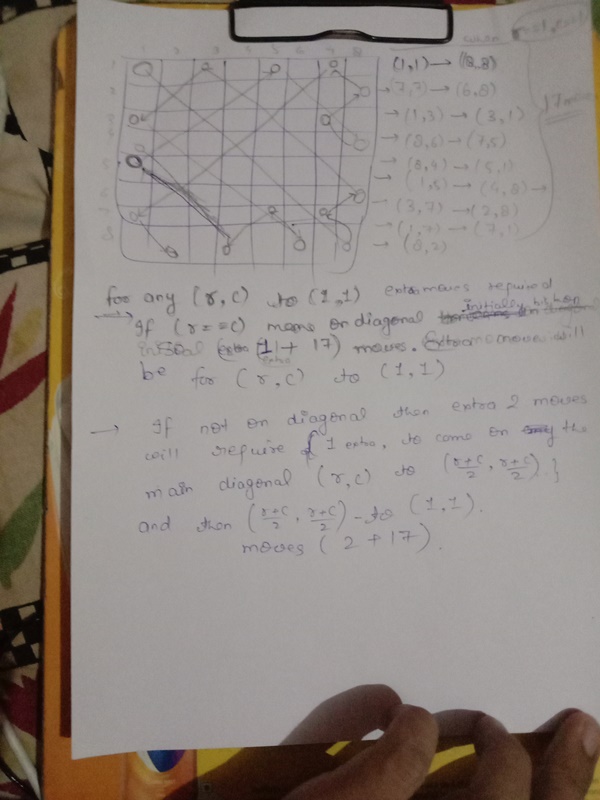 when
(1,1) → (8,8)
→ (7,7) → (6,8)
→ (1,3) → (3,1)
→ (8,6) → (7,5)
→ (8,4) → (5,1)
→ (1,5) → (4,8) →
→ (3,7) → (2,8)
→ (1,7) → (7,1)
→ (8,2)
for any (r,c) to (1,1) extra moves required
→ If (r==c) means on diagonal initially
1 + 17) moves. Extra move will
be for (r,c) to (1,1)
→ If not on diagonal then extra 2 moves
will require { 1 extra, to come on the
main diagonal (r,c) to (r+c/2, r+c/2) }
and then (r+c/2, r+c/2) - to (1,1).
moves (2+17).